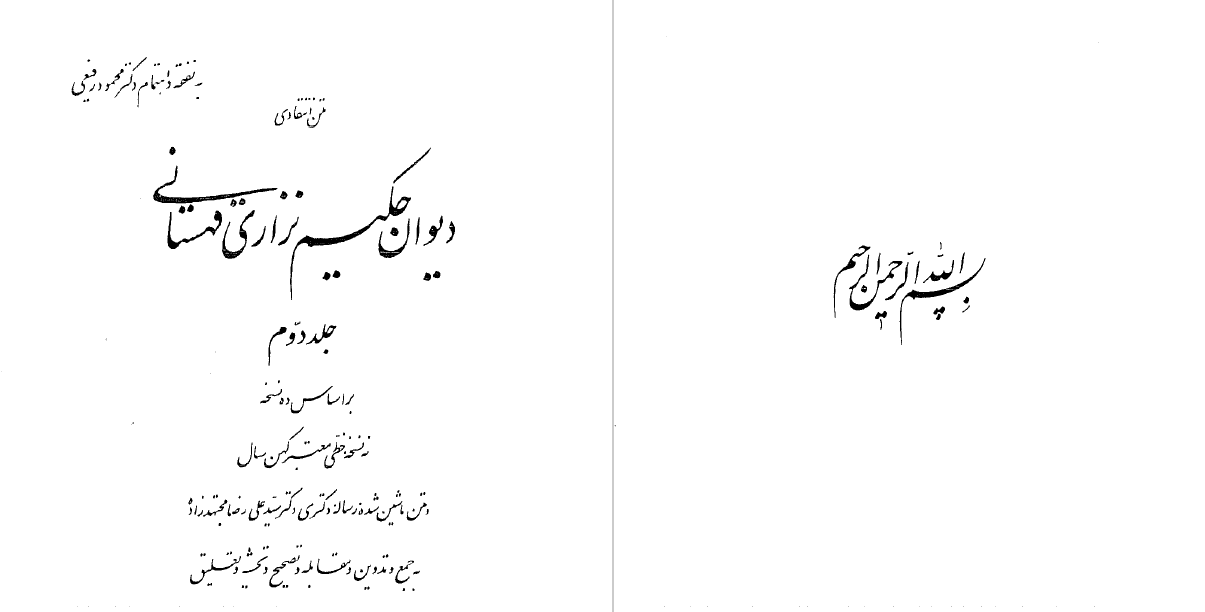 بسم الله الرحمن الرحیم
به نفقه و اهتمام دکتر محمود رفیعی
متن انتقادی
دیوان حکیم نزاری قهستانی
جلد دوّم
براساس ده نسخه
نه نسخهٔ خطّی معتبر کهن سال
و متن ماشین شدهٔ رسالهٔ دکتری دکتر سیّد علی رضا مجتهدزاده
به جمع و تدوین و مقابله و تصحیح و تحشیه و تعلیق